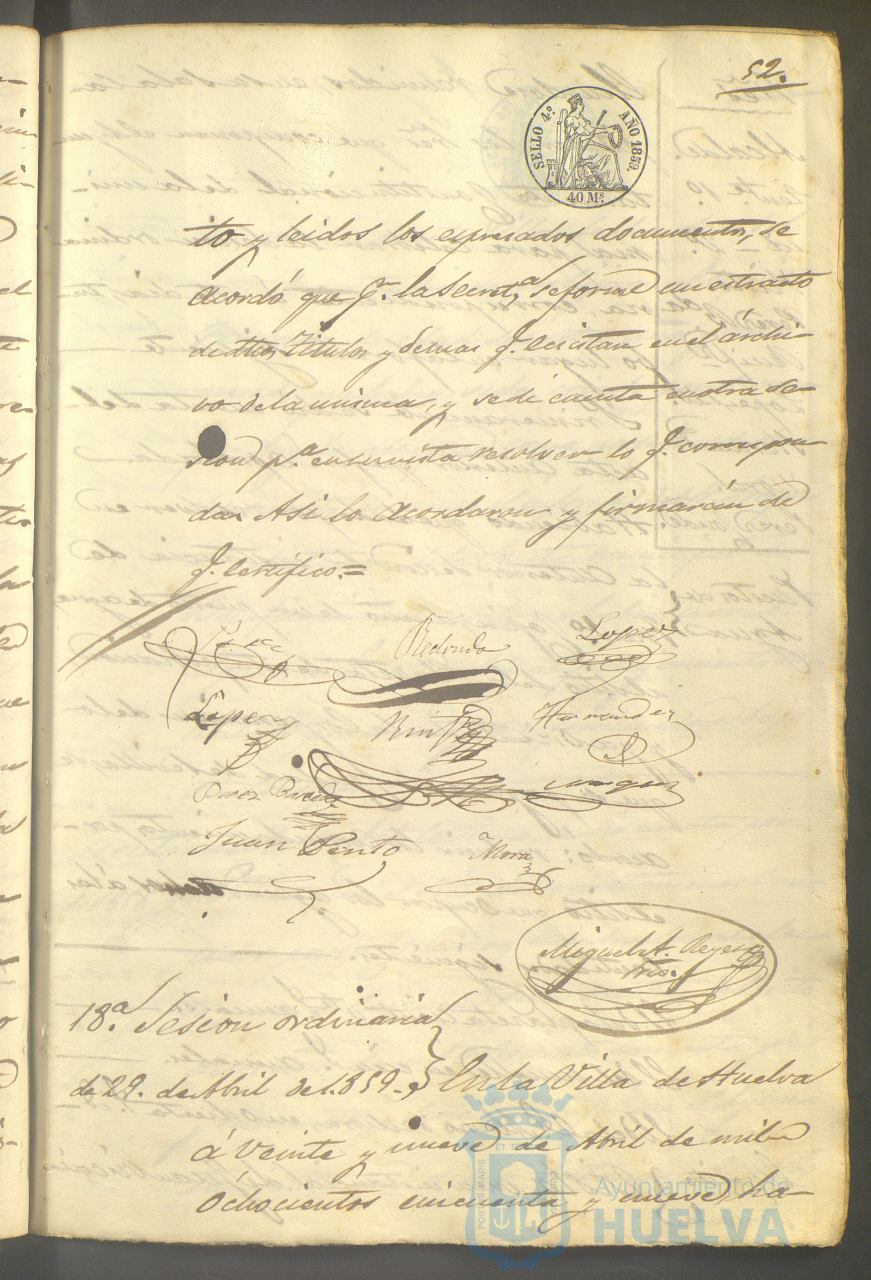 52.
SELLO 4º AÑO 1859.
40 Ms.
to y leidos los expresados documentos, se
acordó que pr. la Secreta. se forme un estracto
de dhos. Titulos y demas q. ecsistan en el árchi-
vo de la misma, y se dé cuenta en otra se-
sion pa. en su vista resolver lo q. correspon-
da. Asi lo acordaron y firmarán de
q. certifico.=
Redondo
Lopez
Lopez
Hernandez
Perez
Juan Pinto
Mora
Miguel A. Reyes
Srio.
18.a Sesion ordinaria
de 29. de Abril de 1.859.} En la Villa de Huelva
á veinte y nueve de Abril de mil
ochocientos cincuenta y nueve ha-
PORTUS MARIS
Ayuntamiento de
HUELVA